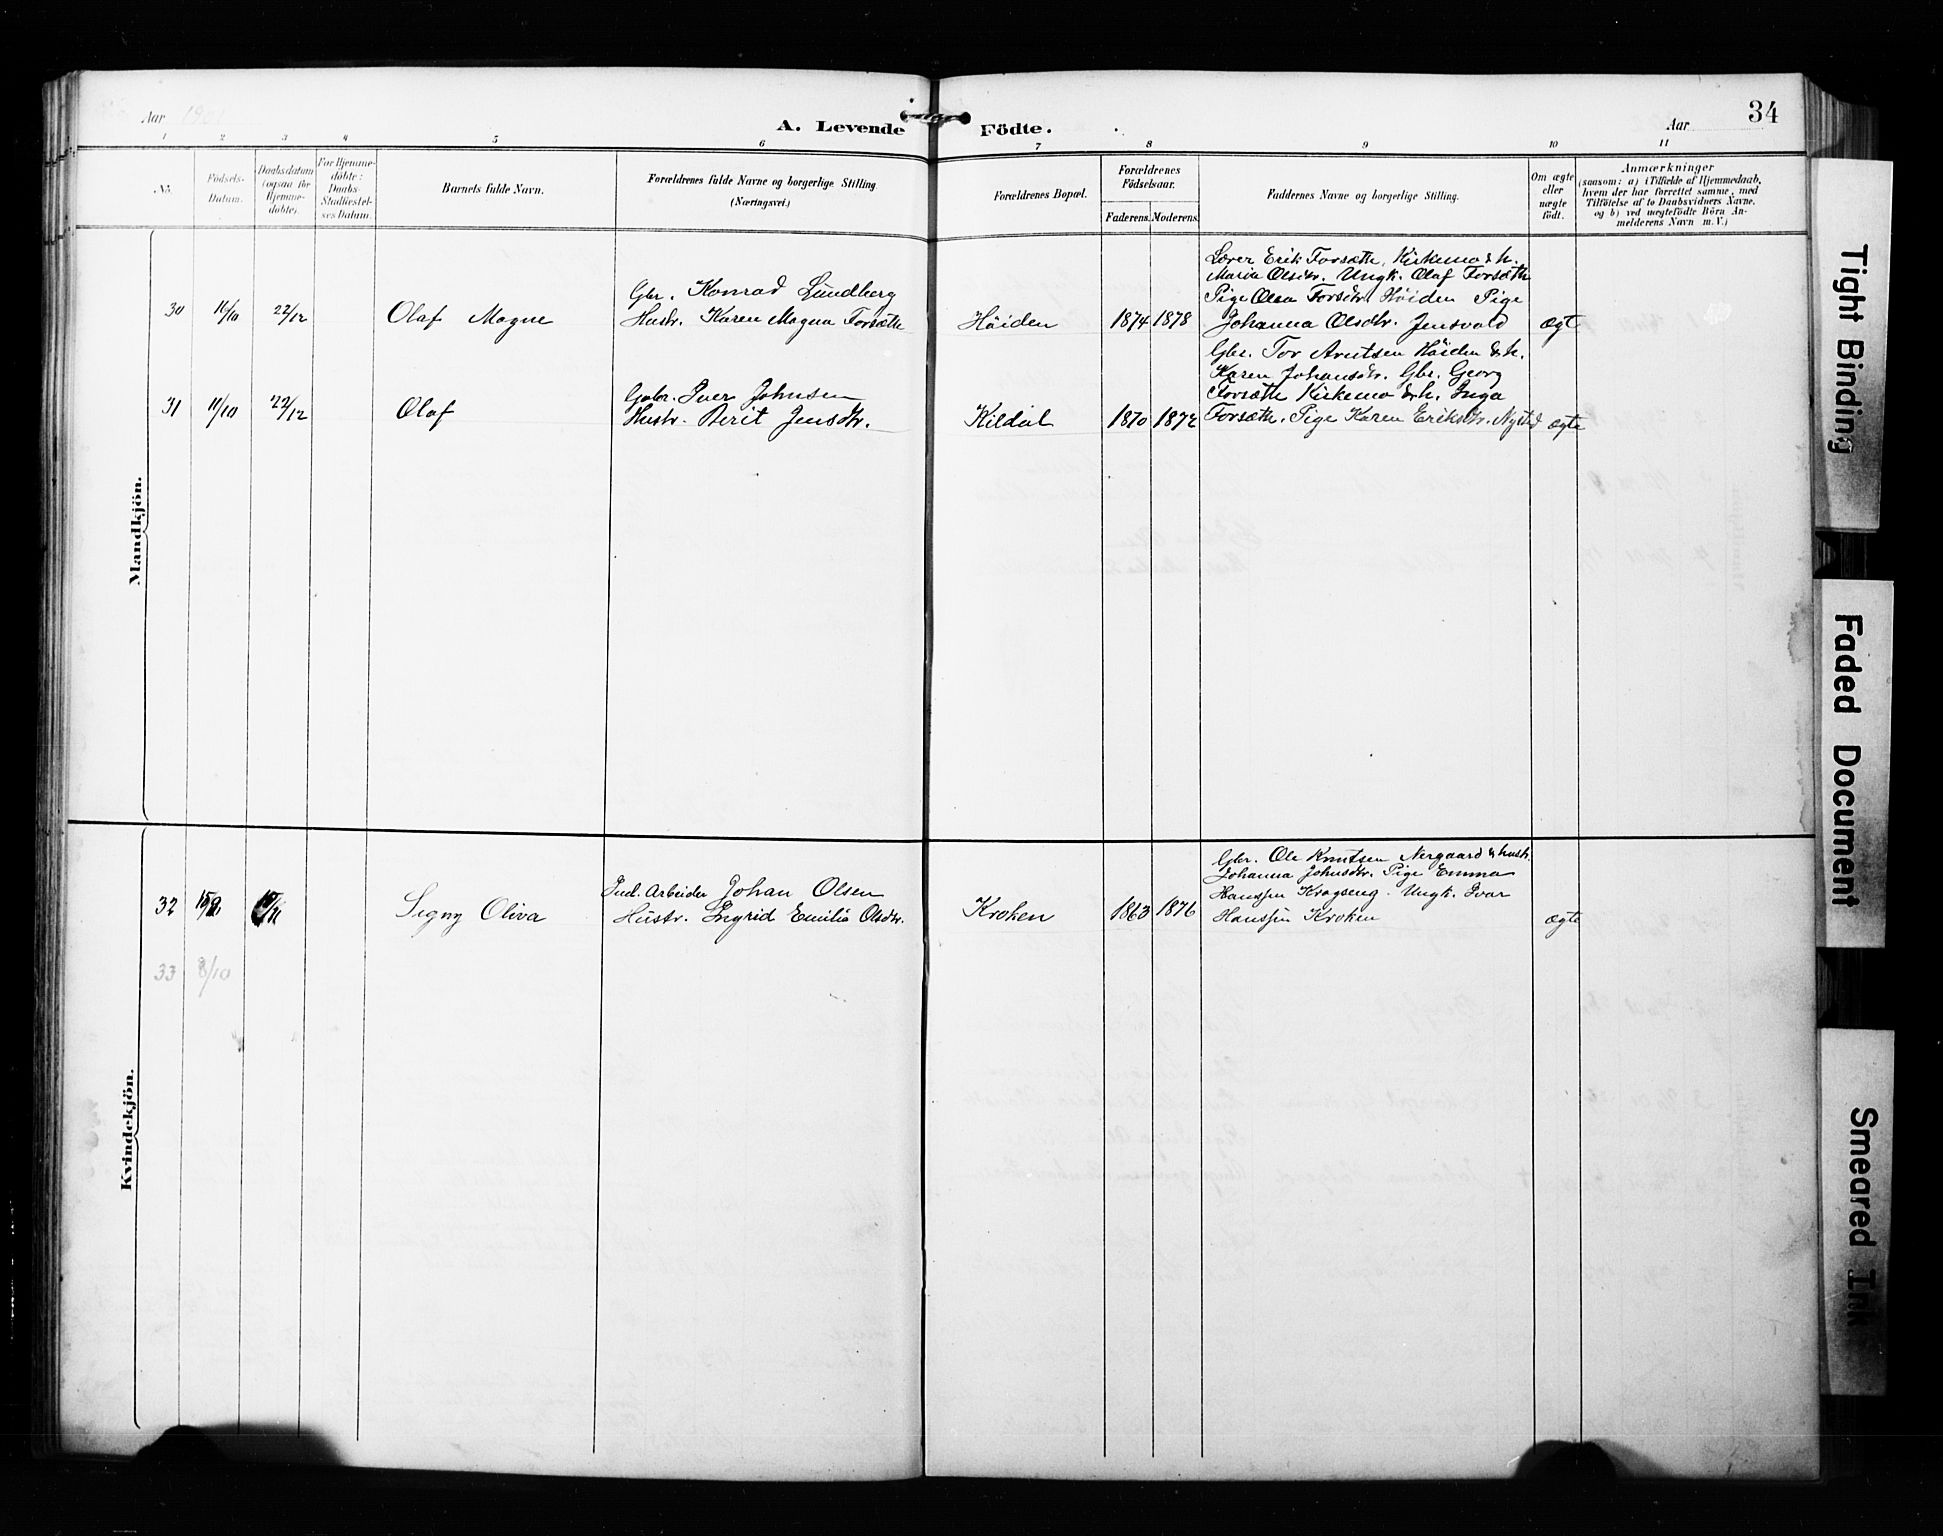 Aar 1901
A. Levende Födte.
Aar
34
1 2 3 4 5 6 7 8 9 10 11
No.
Födsels-
Datum.
Daabsdatum
(ogsaa for
Hjemme-
döbte)
For Hjemme-
döbte:
Daabs-
Stadfæstel-
ses Datum.
Barnets fulde Navn.
Forældrenes fulde Navne og borgerlige Stilling
(Næringsvei.)
Forældrenes Bopæl.
Forældrenes
Födselsaar.
Faderens. Moderens.
Faddernes Navne og borgerlige Stilling.
Om ægte
eller
uægte
födt.
Anmærkninger
(saasom: a) i Tilfælde af Hjemmedaab,
hvem der har forrettet samme, med
Tilföielse af to Daabsvidners Navne,
og b) ved uægtefödte Börn An-
melderens Navn m. V.)
Mandkjön.
30 11/10 22/12 Olaf Magne
Gbr. Konrad Lundberg
Hustr. Karen Magna Forsæth
Höiden 1874 1878
Lærer Erik Forsæth, Kirkemo & h.
Maria Olsdtr. Ungk. Olaf Forsæth
Pige Olsdtr. Höiden Pige
Johanna Olsdtr. Jensvold
ægte
31 11/10 22/12 Olaf
Gbr. Iver Johnsen
Hustr. Berit Jensdtr.
Kildal 1870 1872
Gbr. Tor Arntsen Höiden & h.
Karen Johansdtr. Gbr. Georg
Forsæth Kirkemo & h. Inga
Forsæth. Pige Karen Eriksdtr. Nysted
ægte
Kvindekjön.
32 Signy Oliva
Ind. Arbeider Johan Olsen
Hustr. Ingrid Emilie Olsdtr.
Kroken 1863 1876
Gbr. Ole Knutsen Nergaard & hustr.
Johanna Johnsdtr. Pige Emma
Hanssen Kragseng. Ungk. Ivar
Hanssen Kroken
ægte
33 8/10
Tight Binding
Faded Document
Smeared Ink